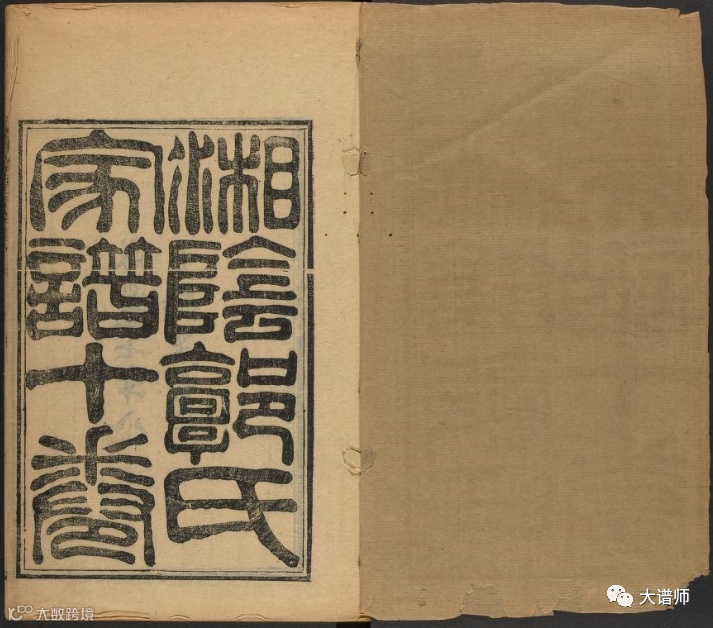 湘陰郭氏
家譜十卷
大谱师
大数跨境